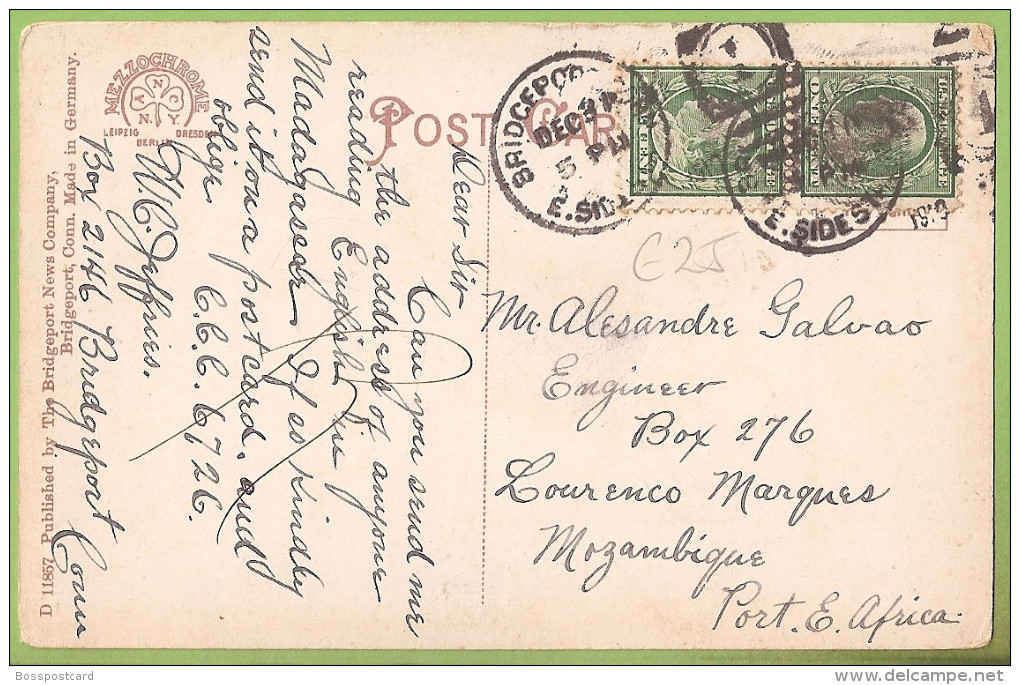 MEZZOCHROME
A N C
N. Y.
LEIPZIG DRESDEN
BERLIN
POST CARD
D 11857 Published by The Bridgeport News Company,
Bridgeport, Conn. Made in Germany.
Dear Sir
Can you send me
the address of anyone
reading English in
Madagaseer If so kindly
send it on a postcard. and
oblige C.C.C. 6726.
W.C. Jeffries.
Box 2146 Bridgeport Conn
BRIDGEPO
DEC 3
5 PM
E. SIDE
E. SIDE ST
ONE CENT
€25
Mr. Alesandre Galvao
Engineer
Box 276
Lourenco Marques
Mozambique
Port. E. Africa.
Bosspostcard
delcampe.net